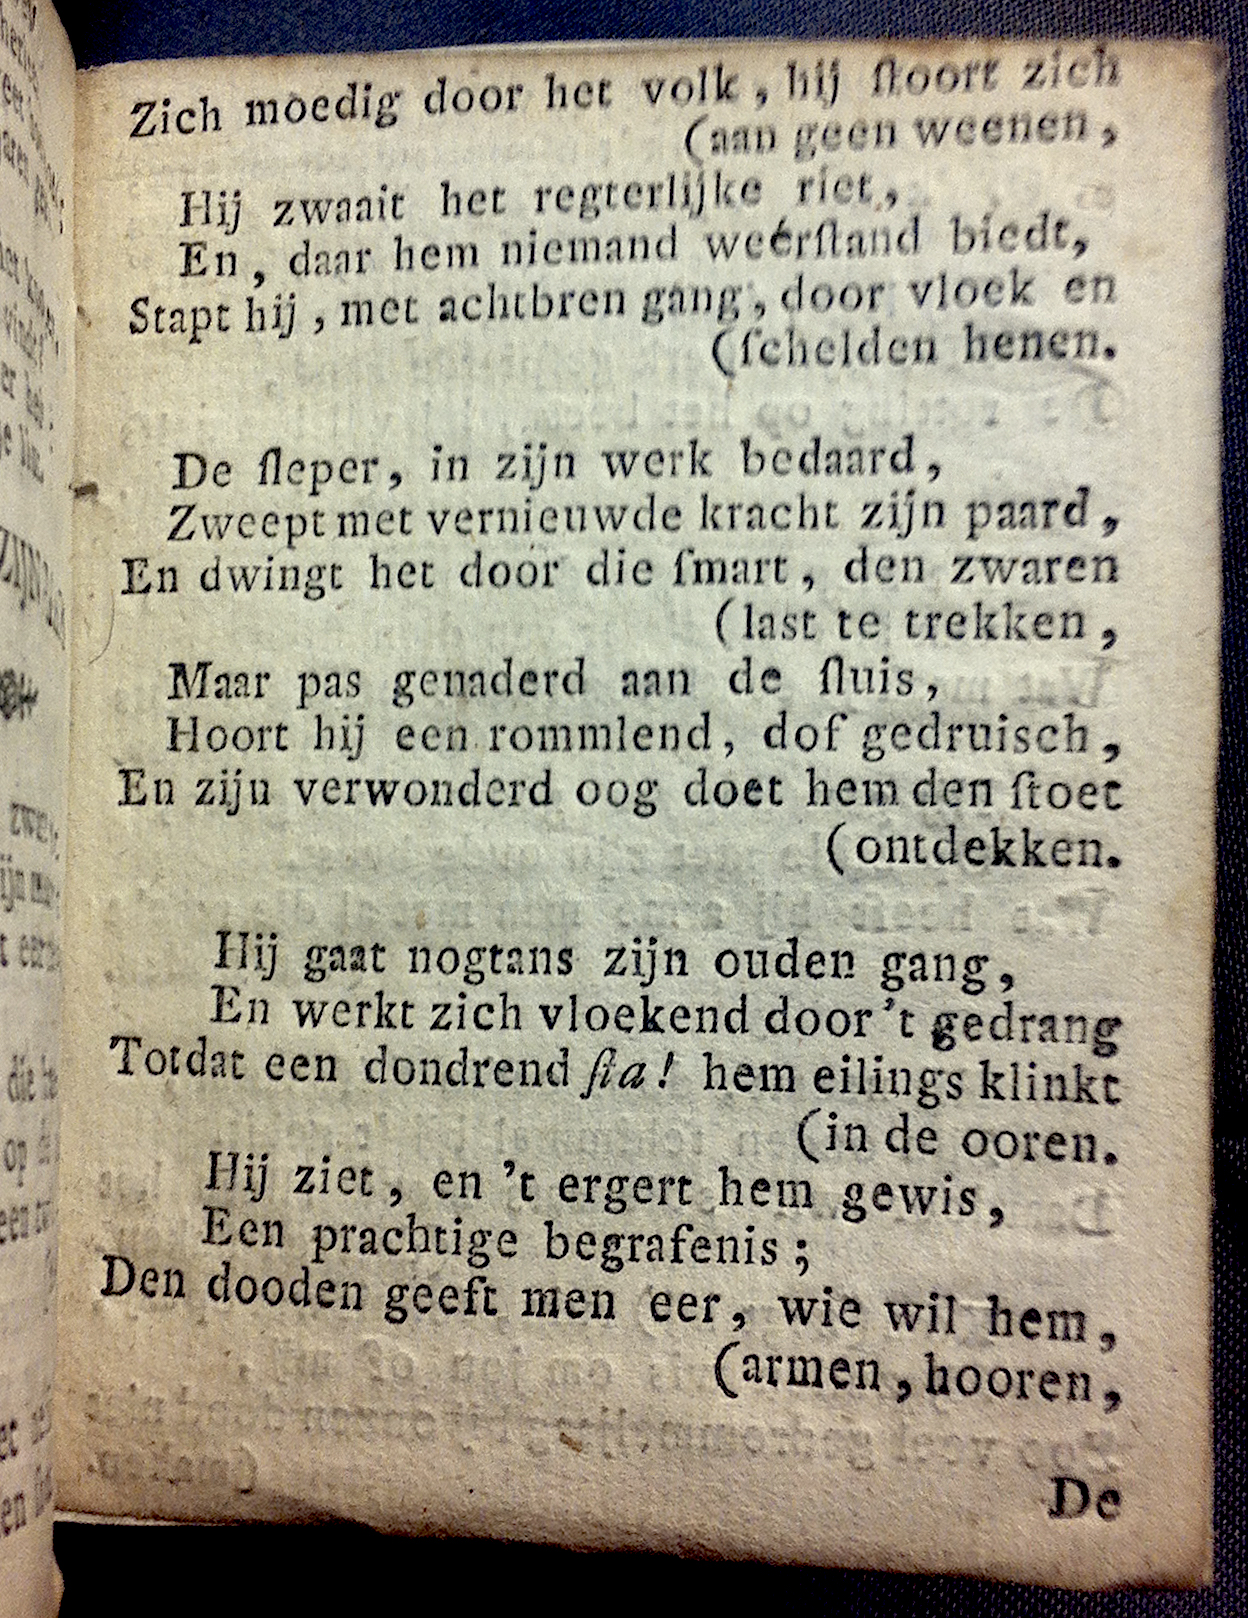 Zich moedig door het volk, hij ſtoort zich
(aan geen weenen,
Hij zwaait het regterlijke riet,
En, daar hem niemand weérſtand biedt,
Stapt hij, met achtbren gang, door vloek en
(ſchelden henen.
De ſleper, in zijn werk bedaard,
Zweept met vernieuwde kracht zijn paard,
En dwingt het door die ſmart, den zwaren
(last te trekken,
Maar pas genaderd aan de ſluis,
Hoort hij een rommlend, dof gedruisch,
En zijn verwonderd oog doet hem den ſtoet
(ontdekken.
Hij gaat nogtans zijn ouden gang,
En werkt zich vloekend door 't gedrang
Totdat een dondrend ſta! hem eilings klinkt
(in de ooren.
Hij ziet, en 't ergert hem gewis,
Een prachtige begrafenis;
Den dooden geeft men eer, wie wil hem,
(armen, hooren,
De